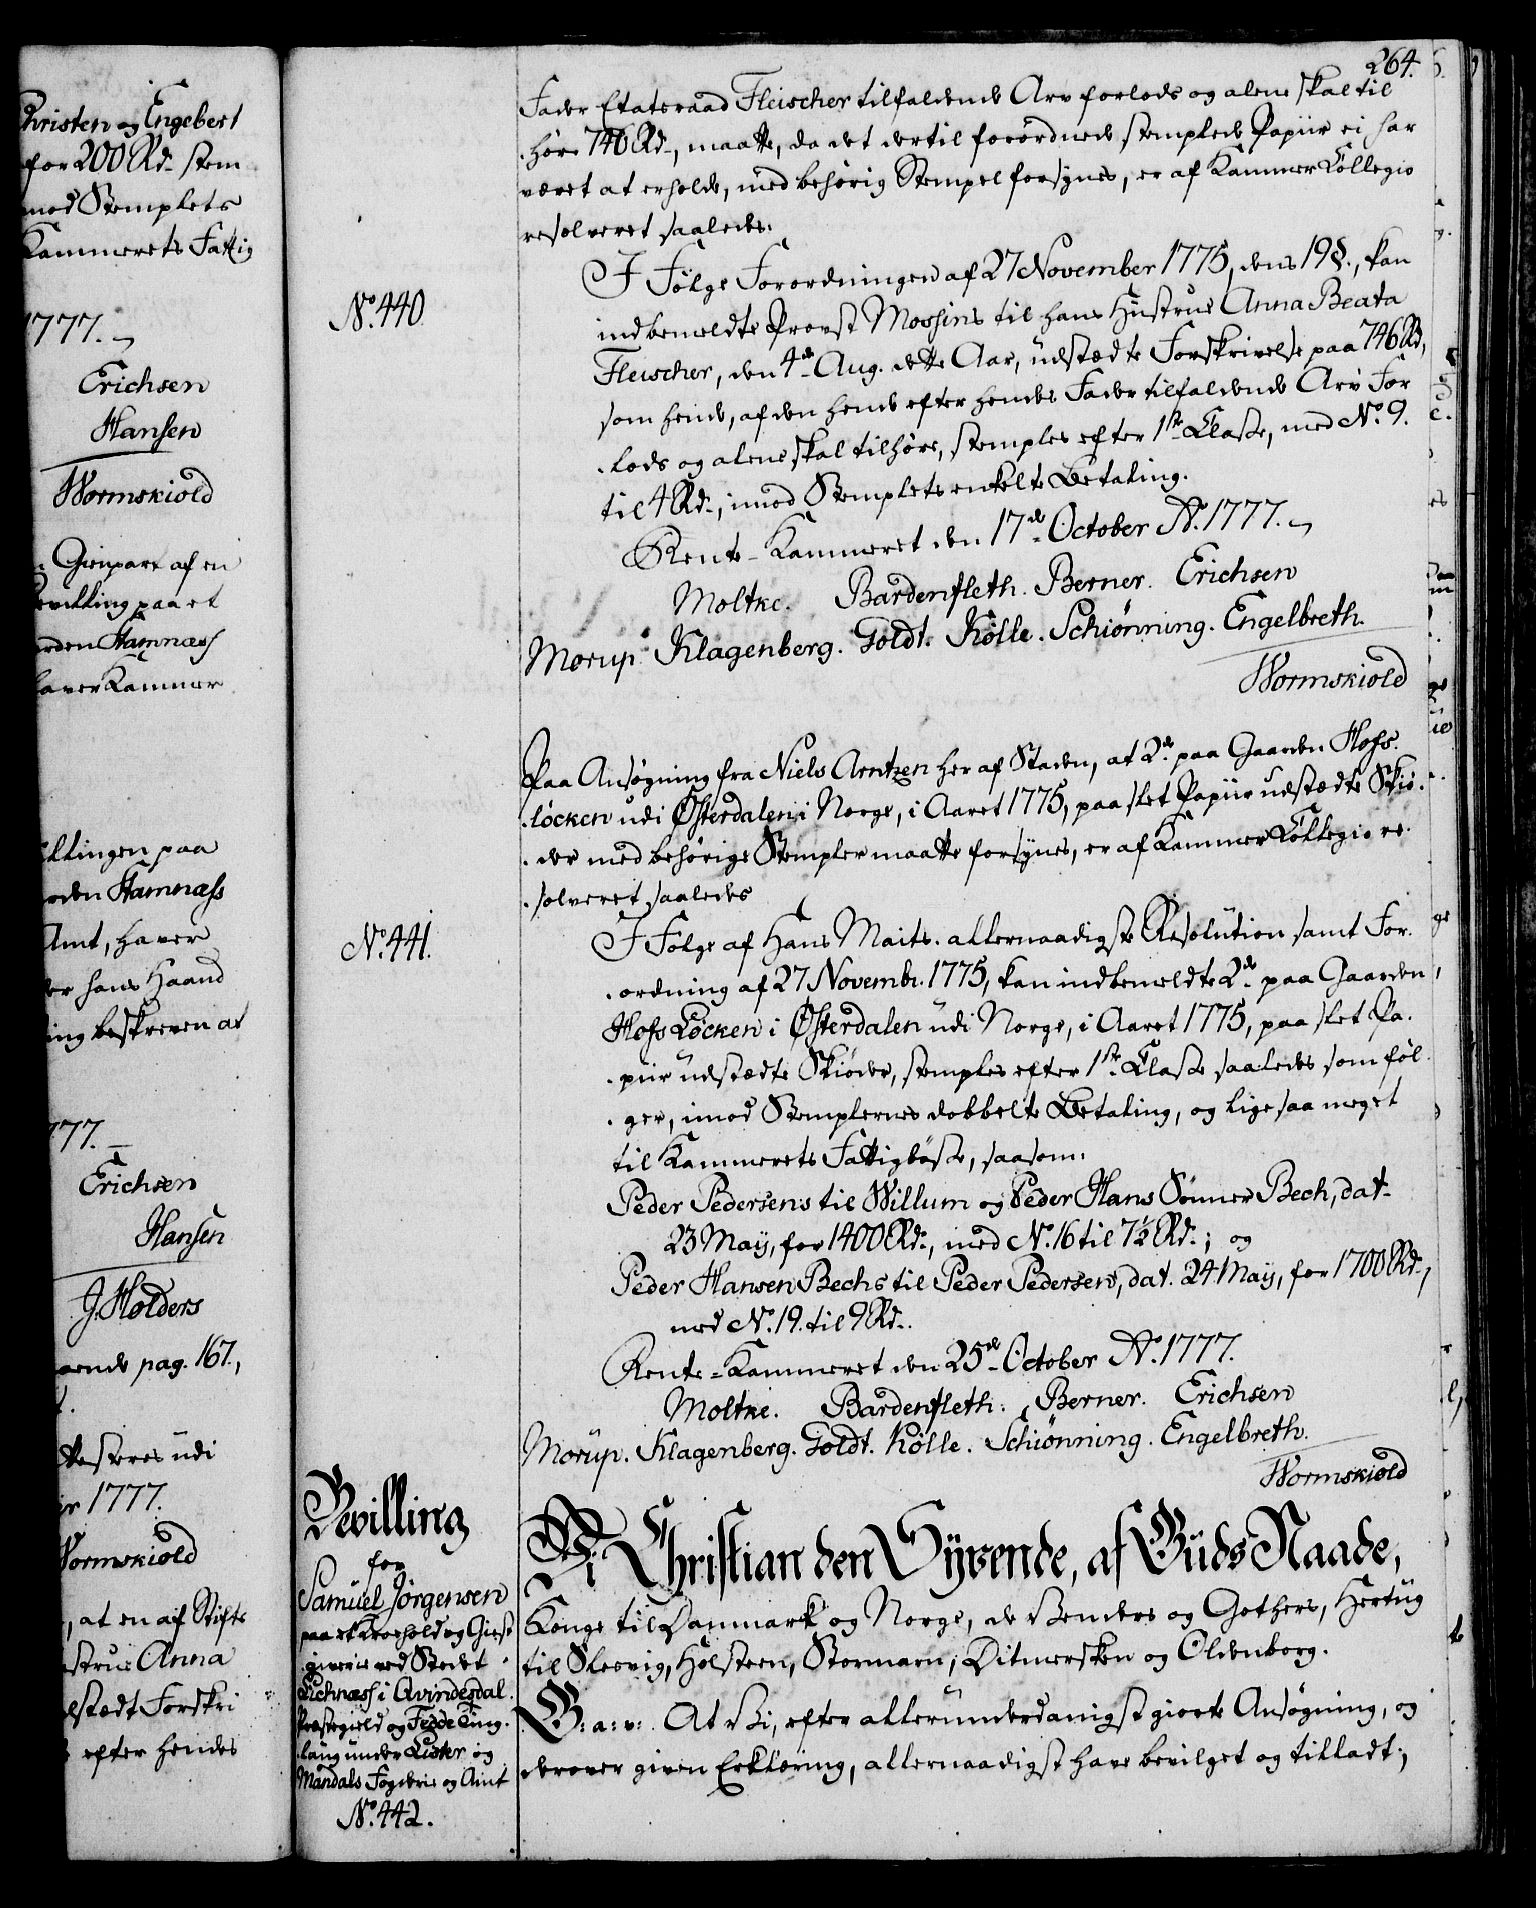 Christen og Engebert
for 200 Rd. stem
mod Stemplets
Kammerets Fattig
1777.
Erichsen
Hansen
Wormskiold
Gienpart af en
Bevilling paa et
Hamnæss
Kammer
illingen paa
Hamnæss
Amt, haver
er hans Haand
ing beskreven at
777.
Erichsen
Hansen
J. Holders
aende pag. 167.,
testeres udi
1777.
Wormskiold
, at en af Stifts
strue Anna
dstædt Forskri
efter hendes
264.
Fader Etatsraad Fleischer tilfaldende Arv forlods og alene skal til
-høre 746 Rd., maatte, da det dertil forordnede stemplede Papiir ei har
været at erholde, med behørig Stempel forsynes, er af Kammer Collegio
resolveret saaledes:
No. 440.
I Følge Forordningen af 27 November 1775, dens 19 §., kan
indbemeldte Provst Mossins til hans Hustrue Anna Beata
Fleischer, den 4de Aug. dette Aar, udstædte Forskrivelse paa 746 Rd,
som hende, af den hende efter hendes Fader tilfaldende Arv For
-lods og alene skal tilhøre, stemples efter 1ste Classe, med No. 9.
til 4 Rd., imod Stemplets enkelte Betaling.
Rente-Kammeret den 17de October Ao. 1777.
Moltke. Bardenfleth. Berner. Erichsen
Morup. Klagenberg. Goldt. Kølle. Schiønning. Engelbreth.
Wormskiold
Paa Ansøgning fra Niels Arntzen her af Staden, at 2de paa Gaarden Hofs-
-løcken udi Østerdalen i Norge, i Aaret 1775, paa slet Papiir udstædte Skiø-
-der med behørige Stempler maatte forsynes, er af Kammer Collegio re-
-solveret saaledes
No. 441.
I Følge af Hans Maits. allernaadigste Resolution samt For-
-ordning af 27 Novembr. 1775, kan indbemeldte 2de paa Gaarden
Hofs Løcken i Østerdalen udi Norge, i Aaret 1775, paa slet Pa-
-piir udstædte Skiøder, stemples efter 1ste Classe saaledes som føl-
-ger, imod Stemplernes dobbelte Betaling, og lige saa meget
til Kammerets Fattigbøsse, saasom:
Peder Pedersens til Willum og Peder Hans Sønner Bech, dat.
23 Maij, for 1400 Rd., med No. 16 til 7½ Rd.; og
Peder Hansen Bechs til Peder Pedersen, dat. 24 Maij, for 1700 Rd.,
med No. 19. til 9 Rd.
Rente-Kammeret den 25de October Ao. 1777.
Moltke. Bardenfleth. Berner. Erichsen
Morup. Klagenberg. Goldt. Kølle. Schiønning. Engelbreth.
Wormskiold
Bevilling
for
Samuel Jørgensen
paa et Kroehold og Giest
-giverie ved Stedet
Lichnæss i Qvindesdal
Præstegield og Fedde Ting-
-laug under Lister og
Mandals Fogderie og Amt
No. 442.
Vi Christian den Syvende, af Guds Naade,
Konge til Danmark og Norge, de Venders og Gothers, Hertug
til Slesvig, Holsteen, Stormarn, Ditmersken og Oldenborg.
G: a: v: At Vi, efter allerunderdanigst giorte Ansøgning, og
derover given Erklæring, allernaadigst have bevilget og tilladt,